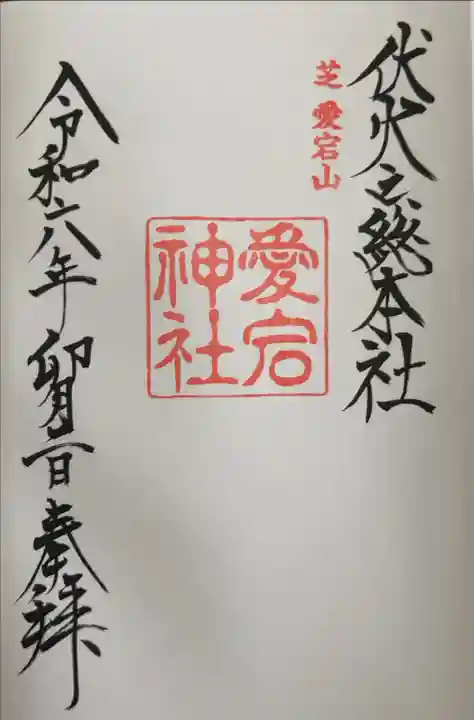 伏火之総本社
芝 愛宕山
愛宕
神社
令和六年 卯月 日 奉拝